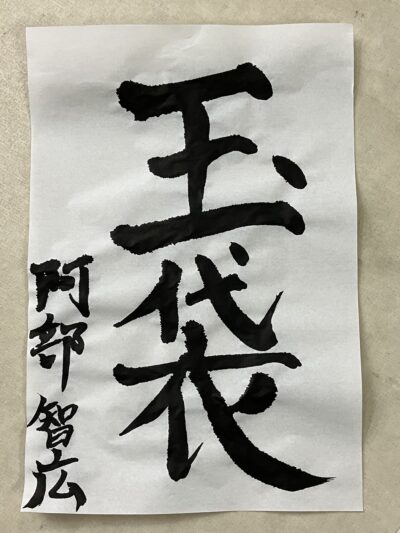 玉袋
阿部智広